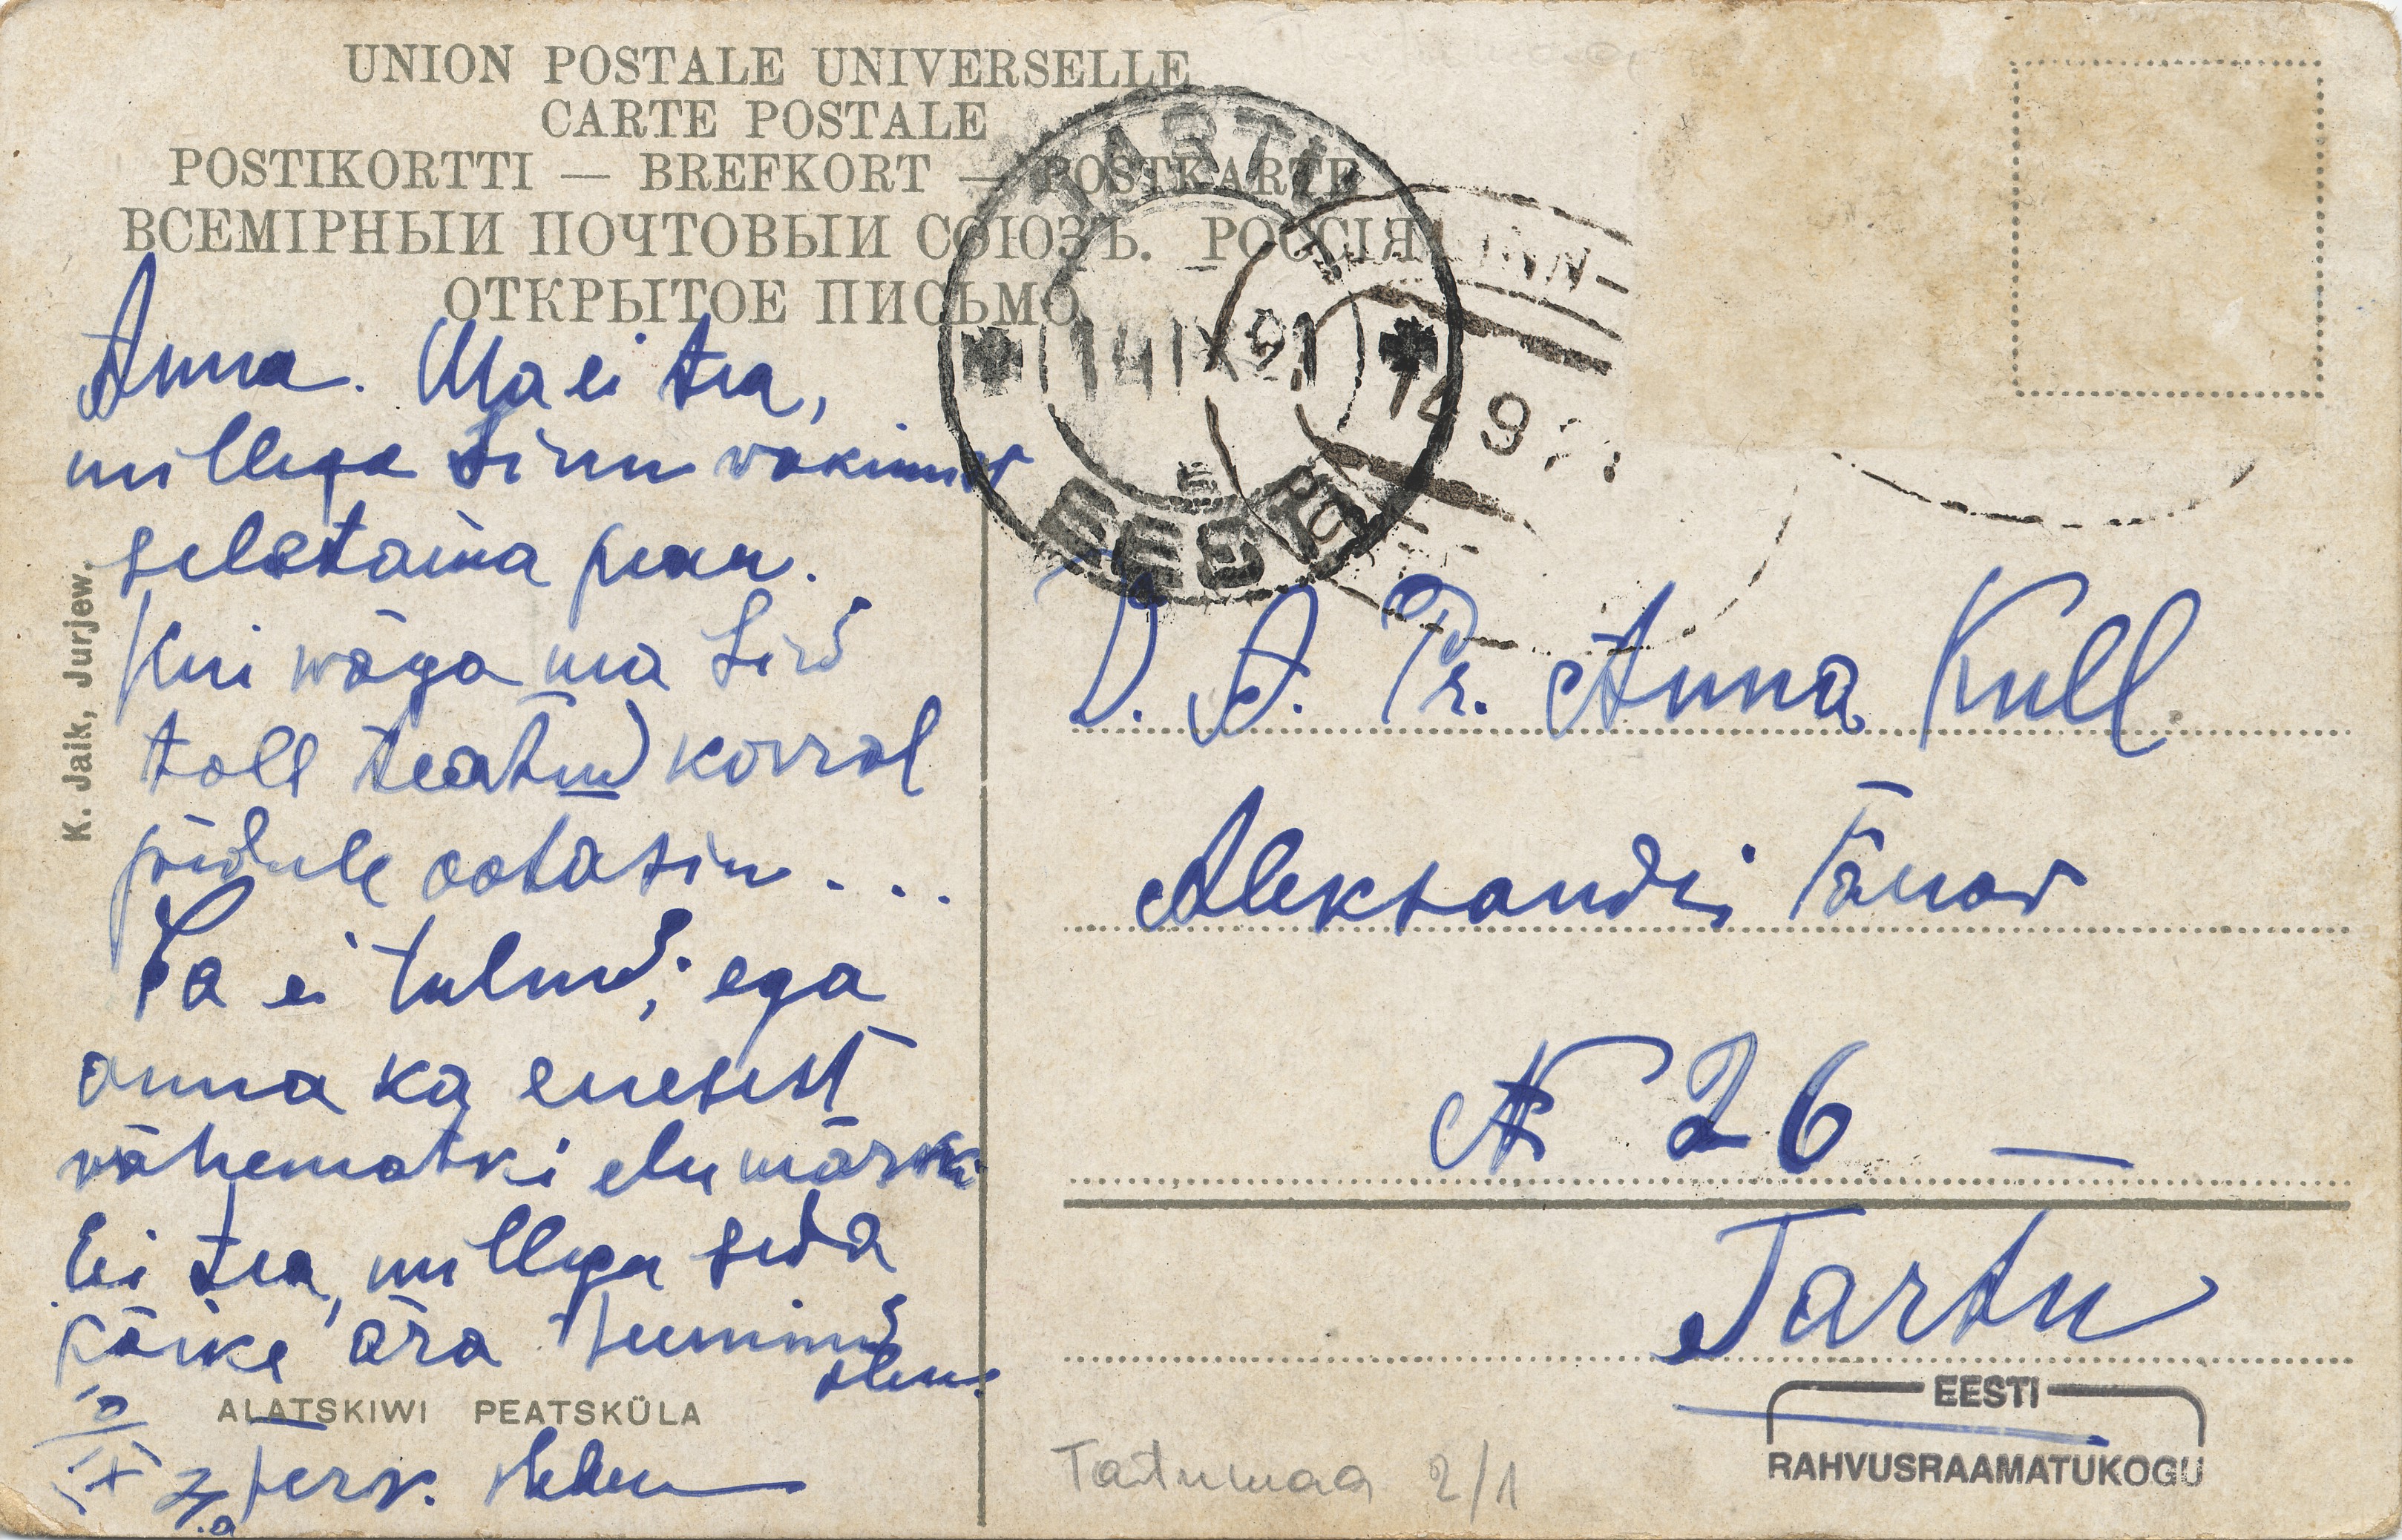 UNION POSTALE UNIVERSELLE
CARTE POSTALE
POSTIKORTTI — BREFKORT — POSTKARTE
ВСЕМІРНЫИ ПОЧТОВЫИ СОЮЗЪ. РОССІЯ
ОТКРЫТОЕ ПИСЬМО
TARTU
14 IX 21
EESTI
14 9
Anna. Ma ei tea,
millega Sinu
seletama pean.
Kui wäga ma Sind
toll teatud korral
pidule ootasin...
Sa ei tulnud; ega
anna ka enesest
vähematki elumärki
Ei tea, millega seda
ära teeninud
olen.
K. Jaik, Jurjew.
ALATSKIWI PEATSKÜLA
Terv.
Pr. Anna Kull
Aleksandri Tänav
N 26 —
Tartu
EESTI
RAHVUSRAAMATUKOGU
Tartumaa 2/1